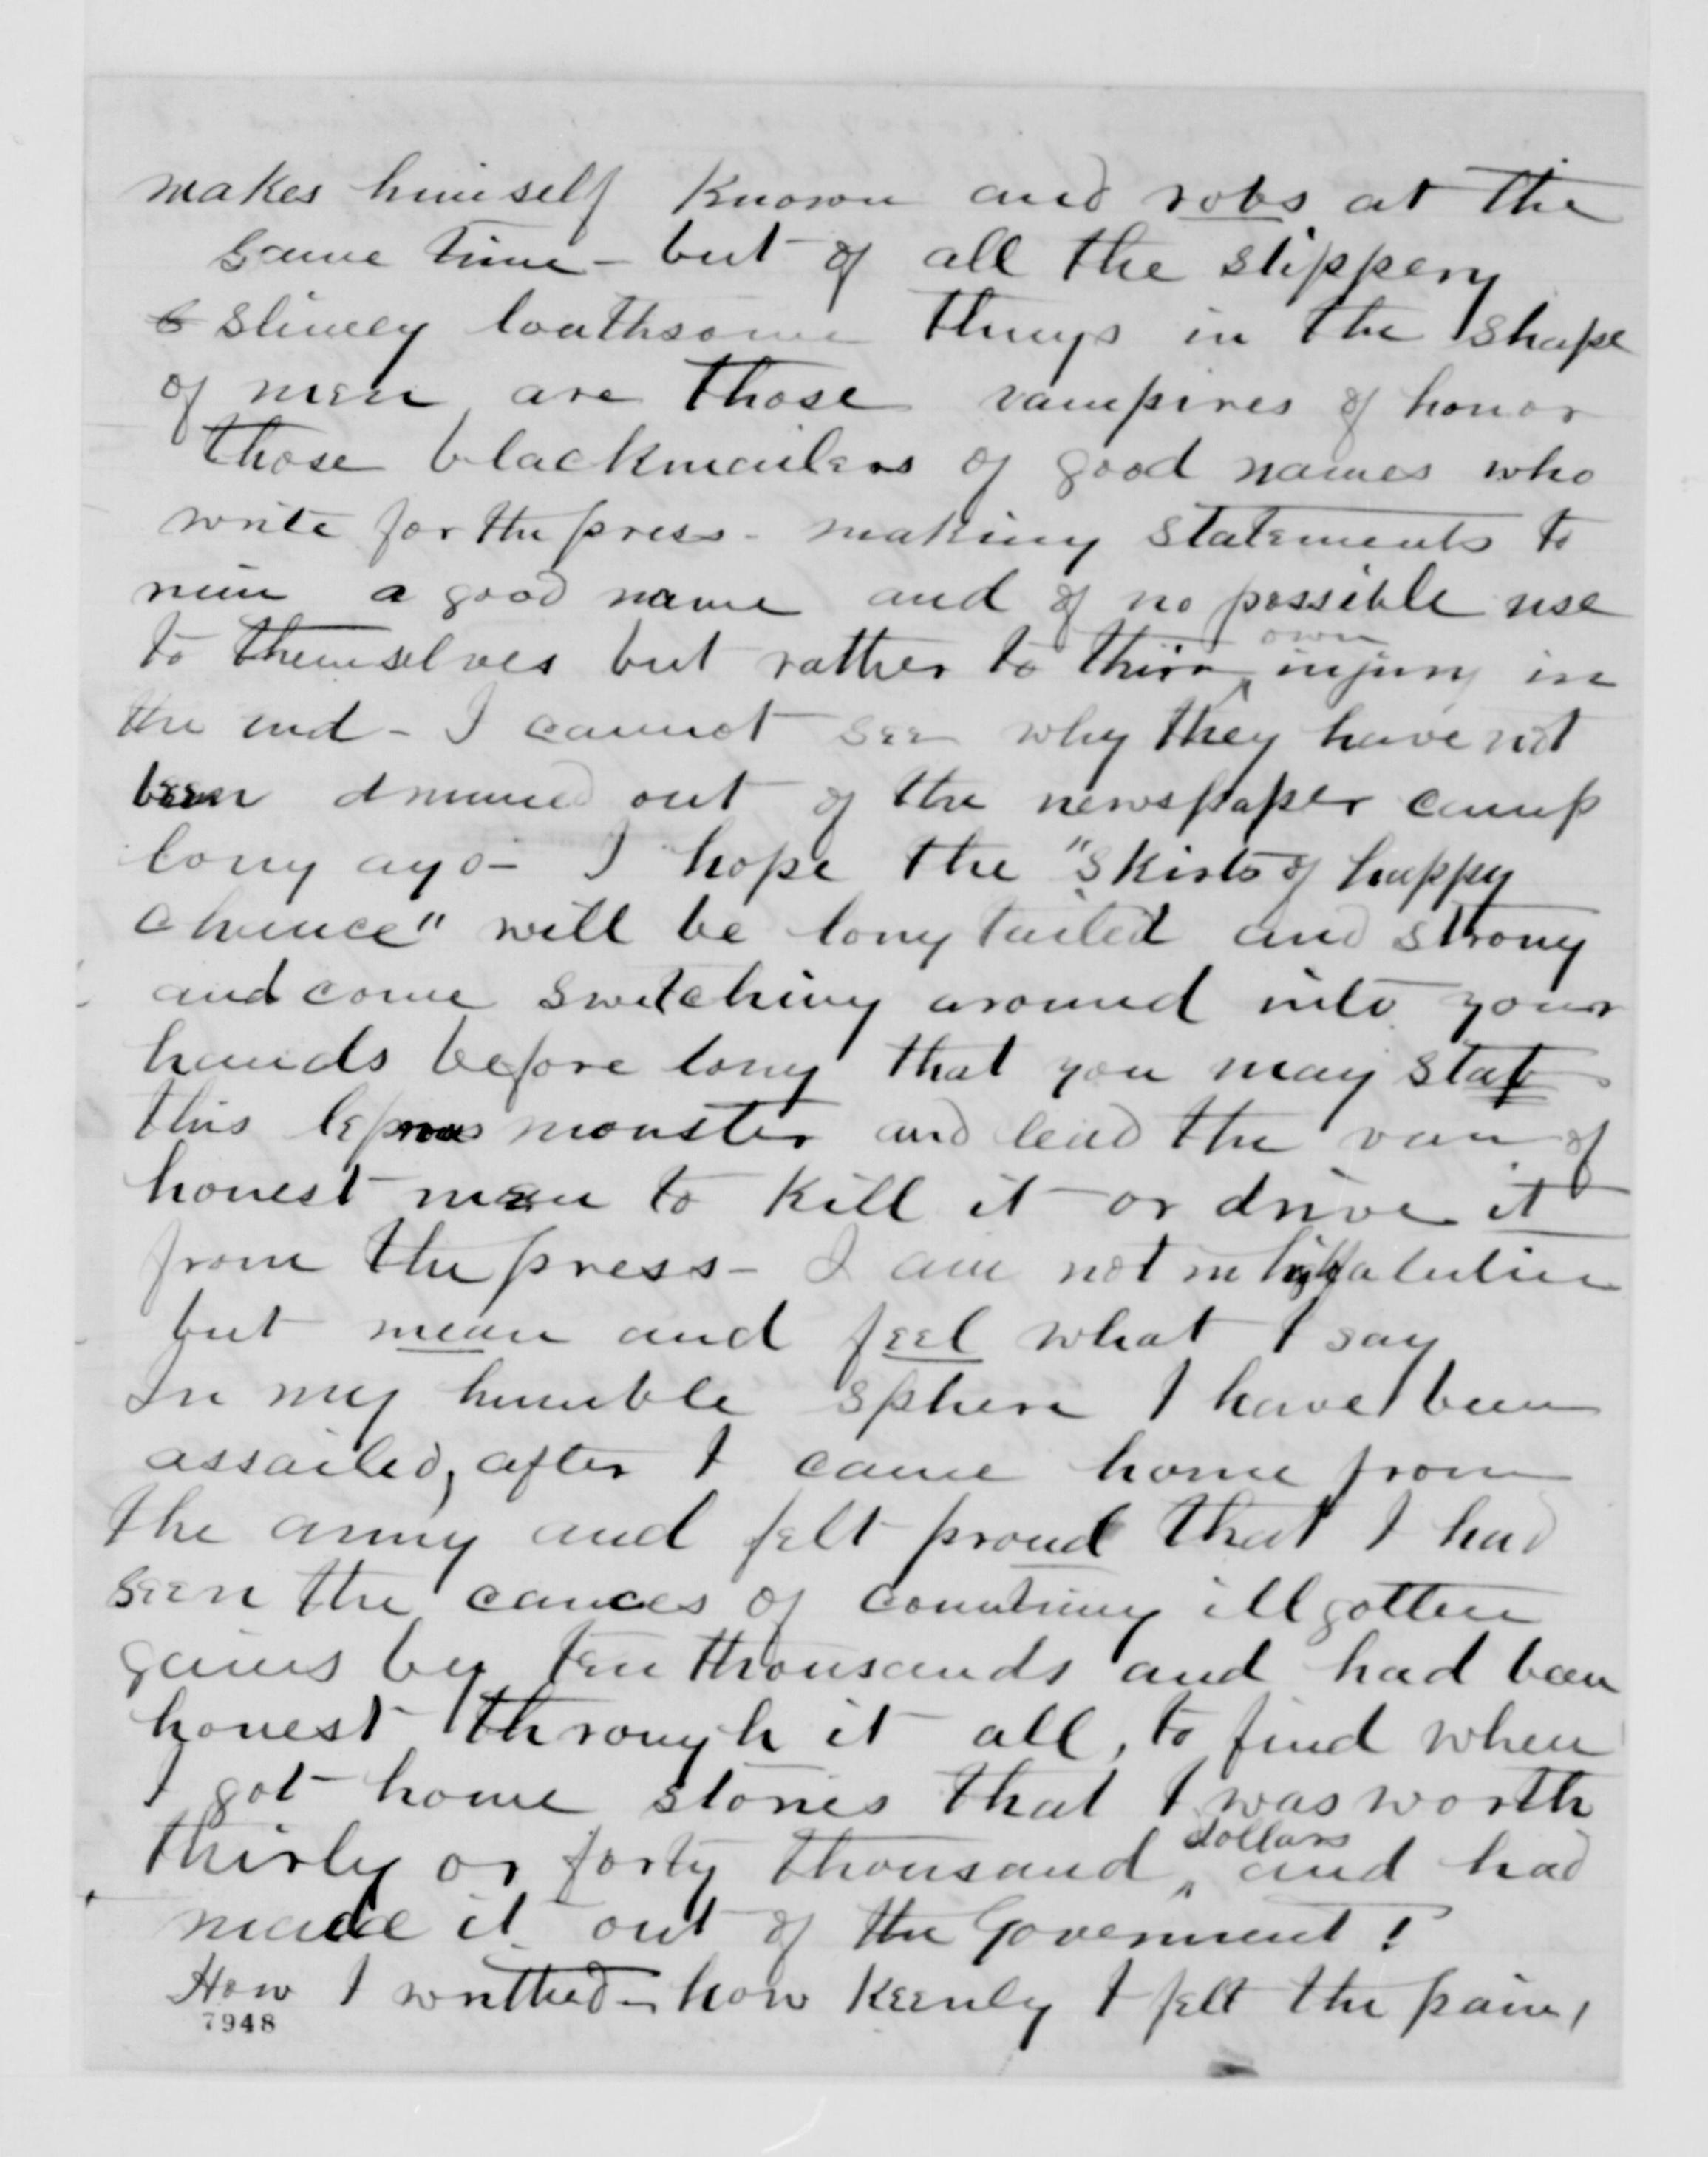 makes himself known and robs at the
same time - but of all the slippery
& slimey loathsome things in the shape
of men, are those vampires of honor
those blackmailers of good names who
write for the press - making statements to
ruin a good name and of no possible use
to themselves but rather to thier own injury in
the end - I cannot see why they have not
been drummed out of the newspaper camp
long ago - I hope the "skirts of happy
chance" will be long tailed and strong
and come switching around into your
hands before long that you may stab
this leprous monster and lead the van of
honest men to kill it or drive it
from the press - I am not in highfalutin
but mean and feel what I say
In my humble sphere I have been
assailed, after I came home from
the army and felt proud that I had
seen the cances of countining ill gotten
gains by ten thousands and had been
honest through it all, to find when
I got home stories that I was worth
thirty or forty thousand dollars and had
made it out of the Goverment!
How I writhed - how keenly I felt the pain,
7948